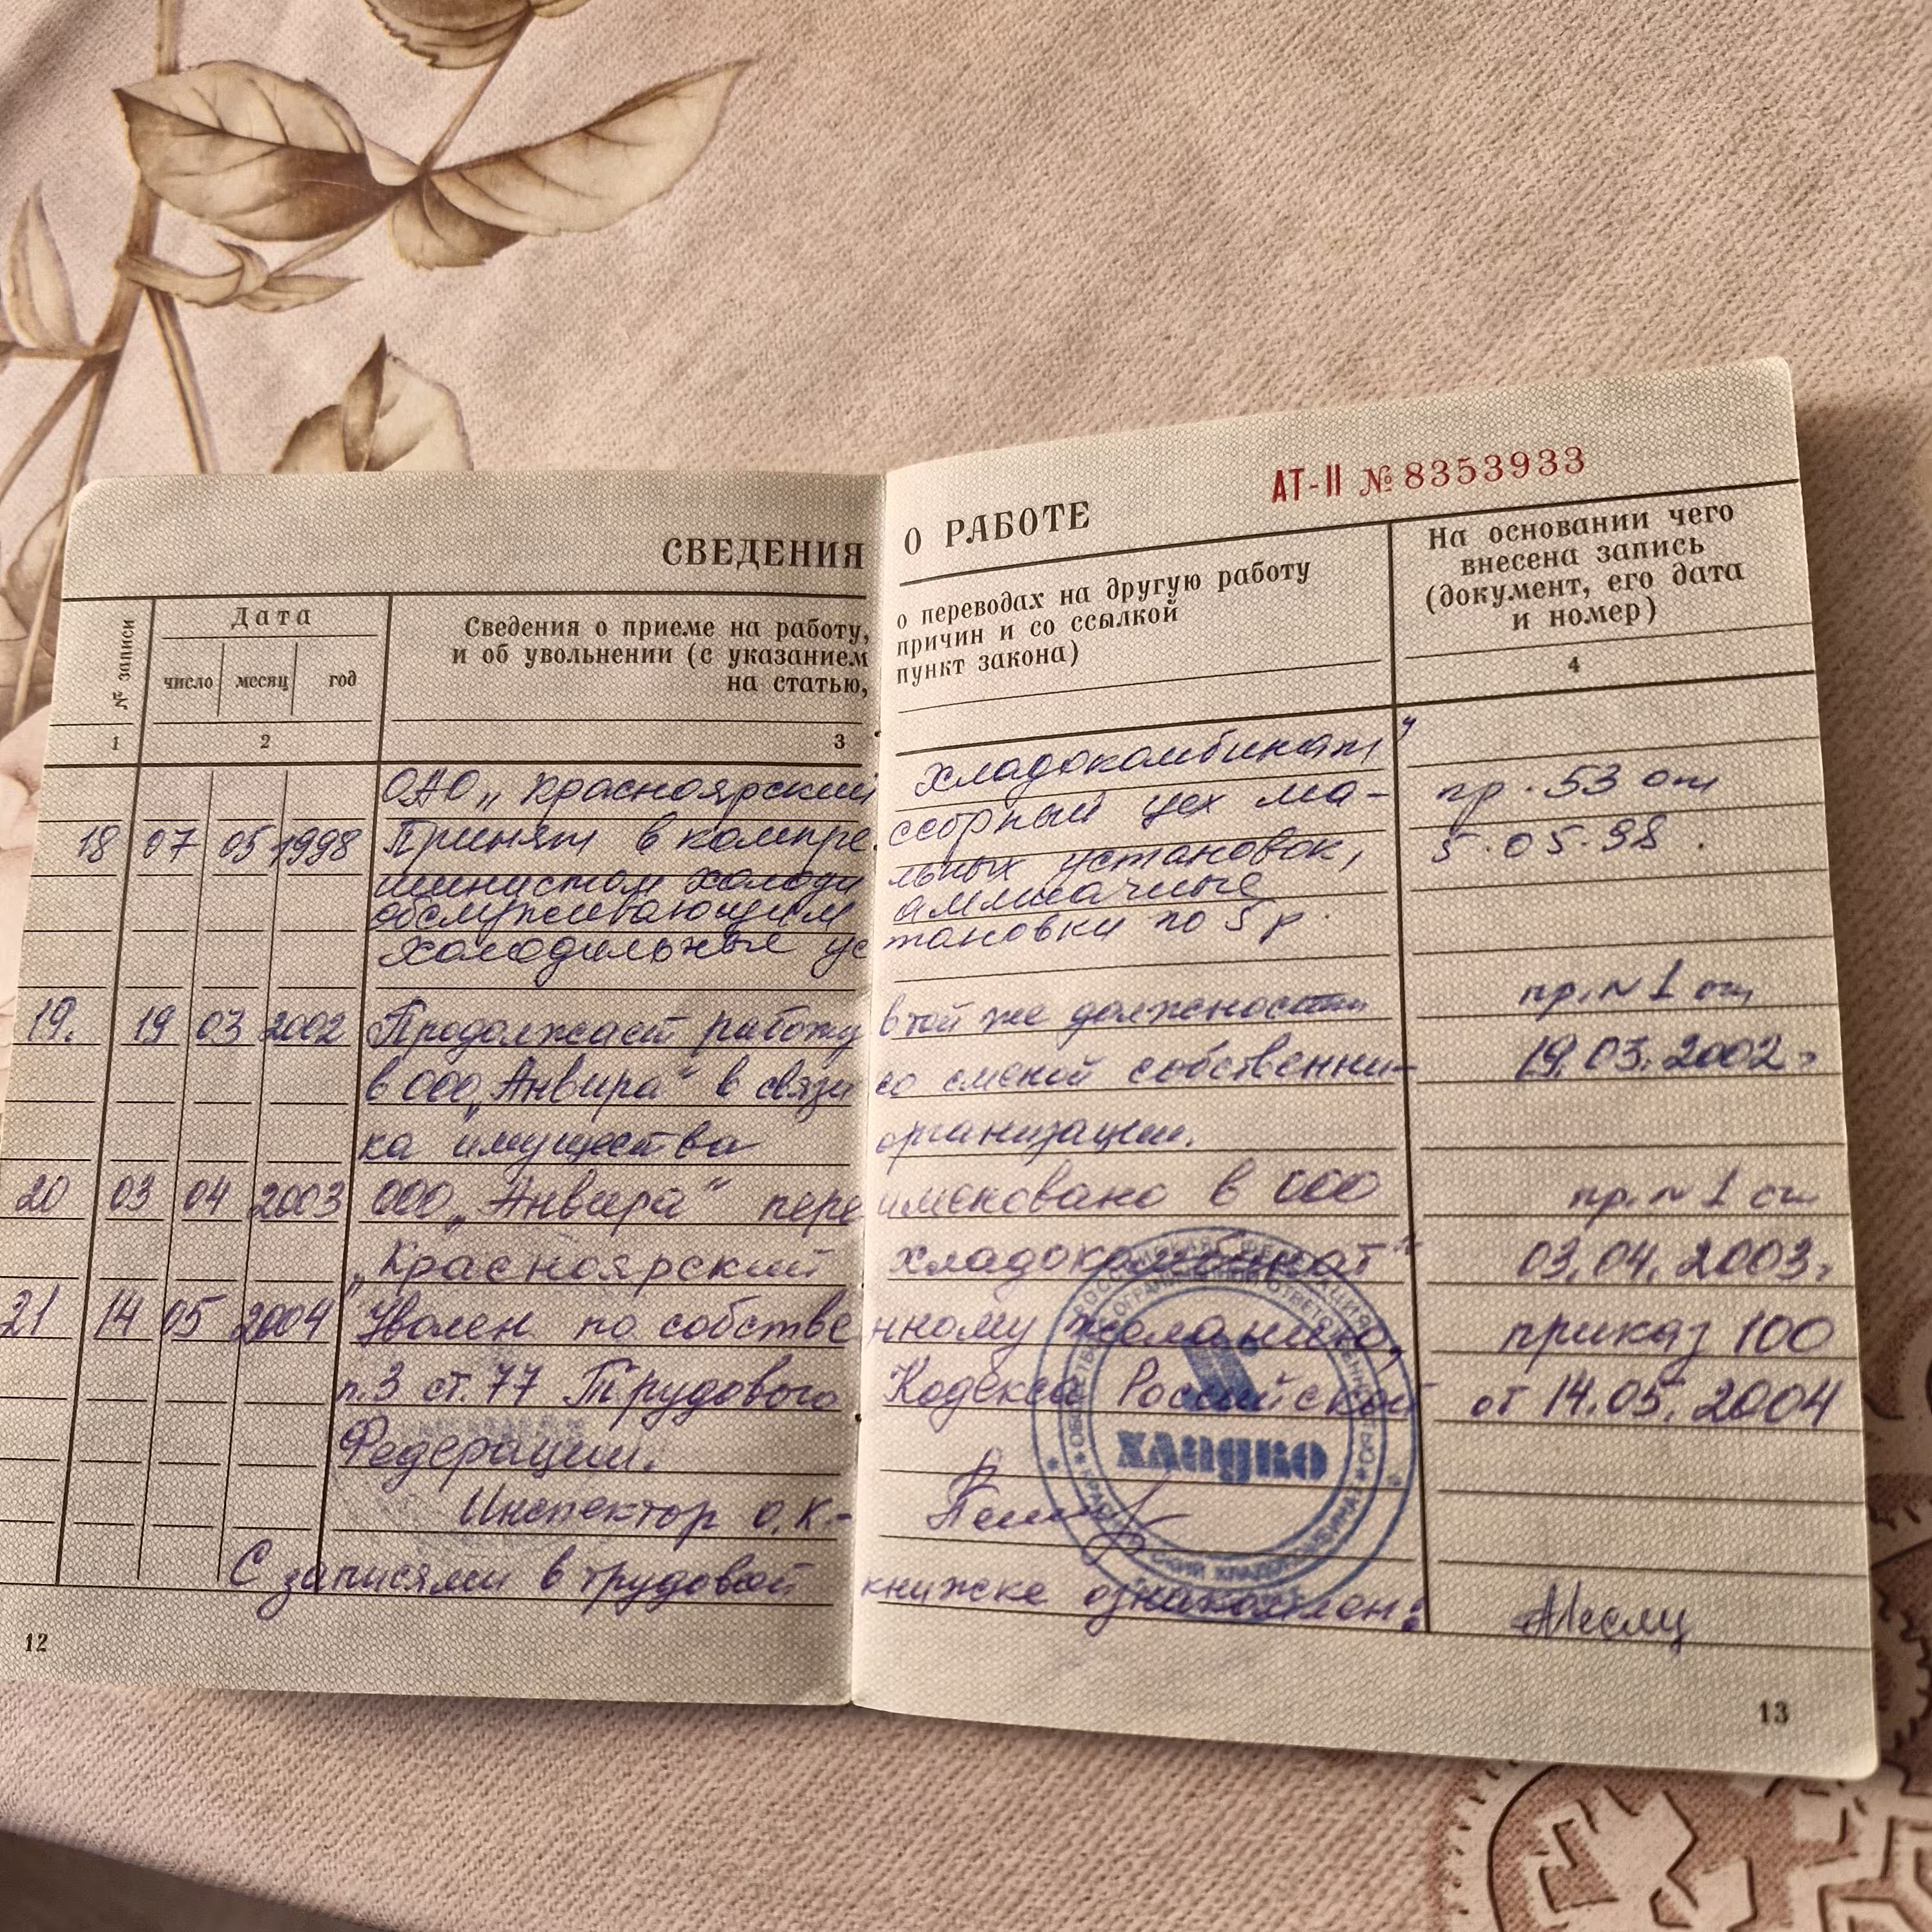 СВЕДЕНИЯ О РАБОТЕ
АТ-II № 8353933
№ записи
Дата
число месяц год
Сведения о приеме на работу, о переводах на другую работу
и об увольнении (с указанием причин и со ссылкой
на статью, пункт закона)
На основании чего
внесена запись
(документ, его дата
и номер)
1 2 3 4
ОАО „Красноярский хладокомбинат"
18 07 05 1998 Принят в компрессорный цех ма- пр. 53 от
шинистом холодильных установок, 5.05.98.
обслуживающим аммиачные
холодильные установки по 5 р.
19. 19 03 2002 Продолжает работу в той же должности пр. N 1 от
в ООО „Анвира" в связи со сменой собственни- 19.03.2002г
ка имущества организации.
20 03 04 2003 ООО „Анвира" переименовано в ООО пр. N 1 от
„Красноярский хладокомбинат" 03.04.2003г
21 14 05 2004 Уволен по собственному желанию, приказ 100
п.3 ст.77 Трудового Кодекса Российской от 14.05.2004
Федерации.
Инспектор О.К.-
С записями в трудовой книжке ознакомлен:
РОССИЙСКАЯ ФЕДЕРАЦИЯ
хладко
12
13